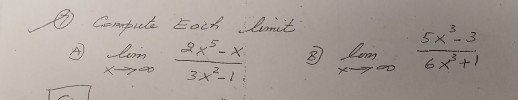 Compute Each limit
A) lim x→∞ (2x⁵ - x)/(3x² - 1)
B) lim x→∞ (5x³ - 3)/(6x³ + 1)